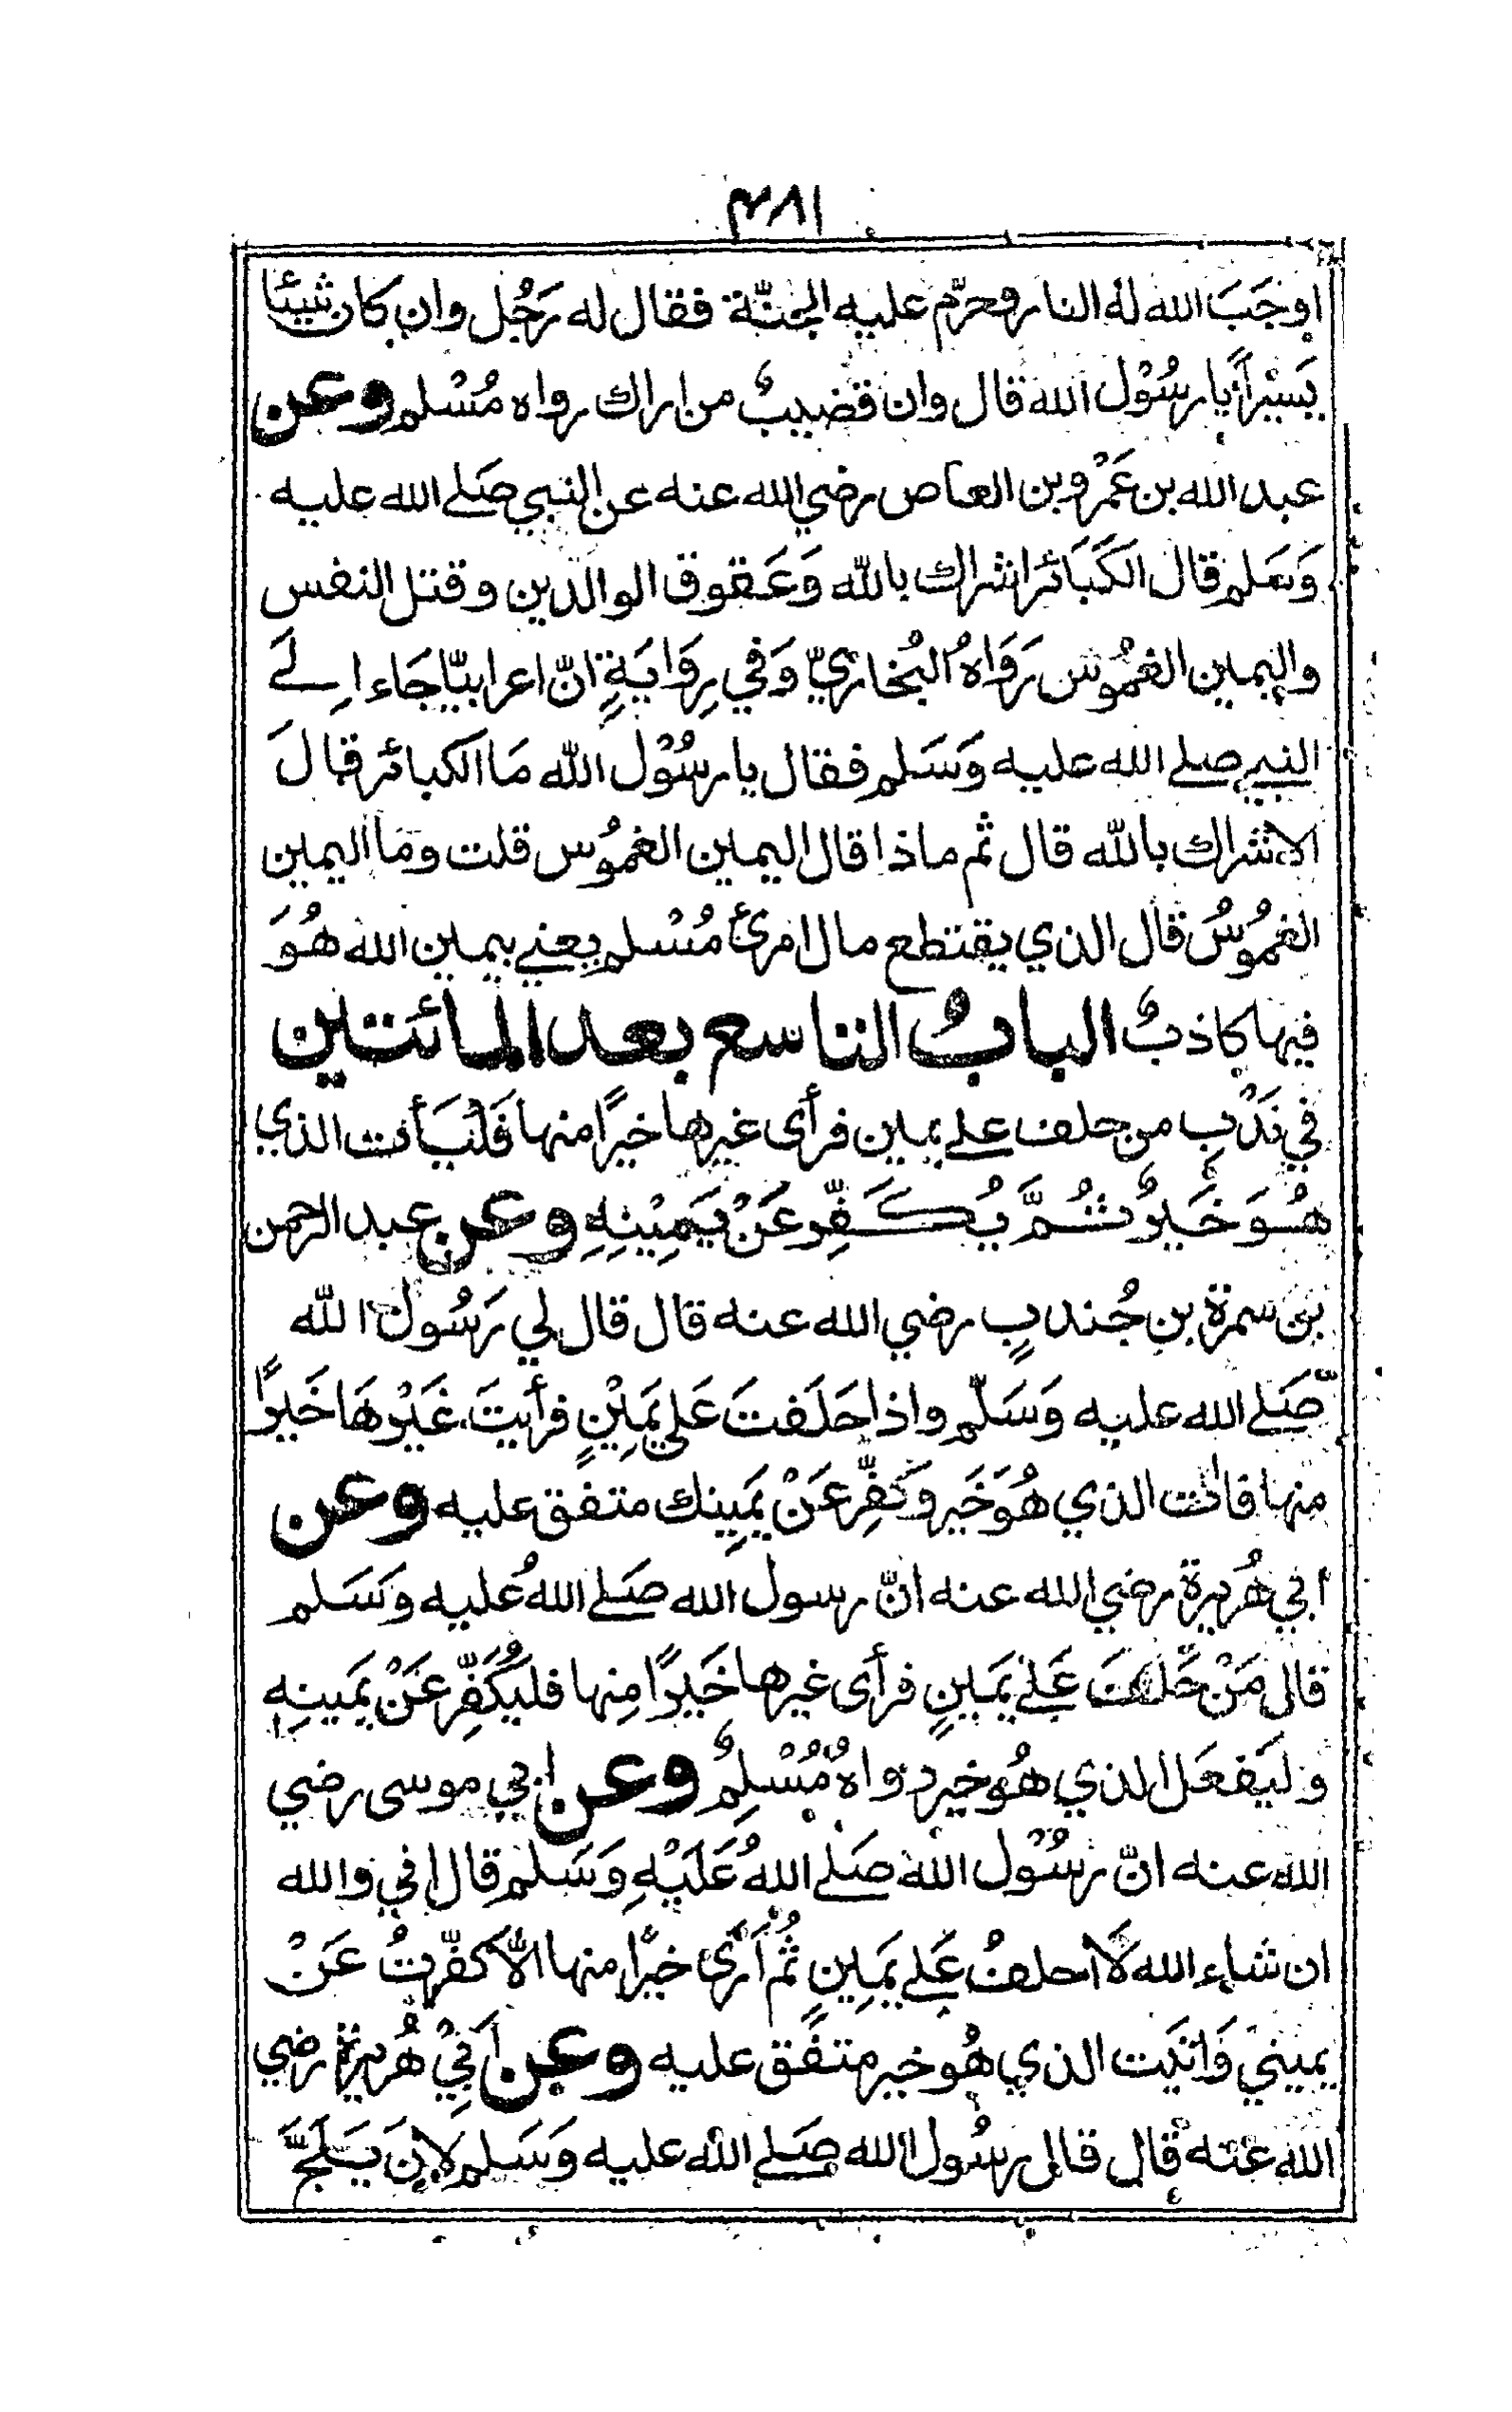 ٣٨١
اوجَبَ الله لهُ النار وحرّم عليه الجنّة فقال له رَجُل وان كان شيئا
يَسيْراً يا رسُوْل الله قال وان قضيبٌ من اراك رواه مُسْلم وعن
عبد الله بن عَمْرو بن العاص رضي الله عنه عن النبي صَلے الله عليه
وَسَلم قال الكَبَائر اشراك بالله وَعَقوق الوالدين وقتل النفس
واليمين الغمُوس رَوَاهُ البُخاريّ وَفي رِوَايَةٍ انّ اعرابيّا جَاء اِلے
النبي صلے الله عليه وَسَلم فقال يا رسُوْل الله مَا الكبائر قال
الاشراك بالله قال ثم ماذا قال اليمين الغمُوس قلت ومَا اليمين
الغمُوسُ قال الذي يقتطع مال امرئ مُسْلم يعني بيمين الله هُوَ
فيها كاذبٌ البابُ التاسع بعد المائتين
في نَدْبِ من حلف علے يمين فرأى غيرها خيرًا منها فَلْيَأت الذي
هُوَ خَيرٌ ثُمَّ يُكَفِّر عَنْ يَمِيْنِهِ وعن عبد الرحمن
بن سمرة بن جُندبٍ رضي الله عنه قال قال لي رَسُول الله
صَلے الله عليه وَسَلّم واذا حَلَفتَ عَلے يَمِيْنٍ فرأيتَ غَيْرهَا خَيرًا
منها فائت الذي هُوَ خَير وكَفِّر عَنْ يَمِينك متفق عليه وعن
أبي هُريرة رضي الله عنه انّ رسول الله صَلے اللهُ عليه وَسَلم
قال مَنْ حَلفَ عَلے يَمينٍ فرأى غيرها خَيرًا مِنها فليُكَفِّر عَنْ يَمينِه
وليَفعَل الذي هُو خير رواهُ مُسْلِمٌ وعن ابي موسى رضي
الله عنه انّ رسُوْل الله صَلے اللهُ عَلَيْهِ وَسَلم قال اني والله
ان شَاء الله لَا احلفُ عَلے يَمِينٍ ثُم أَرَى خيرًا منها الّا كفّرتُ عَنْ
يميني وَاتيَت الذي هُو خير متفَق عليه وعن أَبِيْ هُريرة رضي
الله عنه قال قال رسُول الله صَلے الله عليه وَسَلم لانَ يَلَجَّ